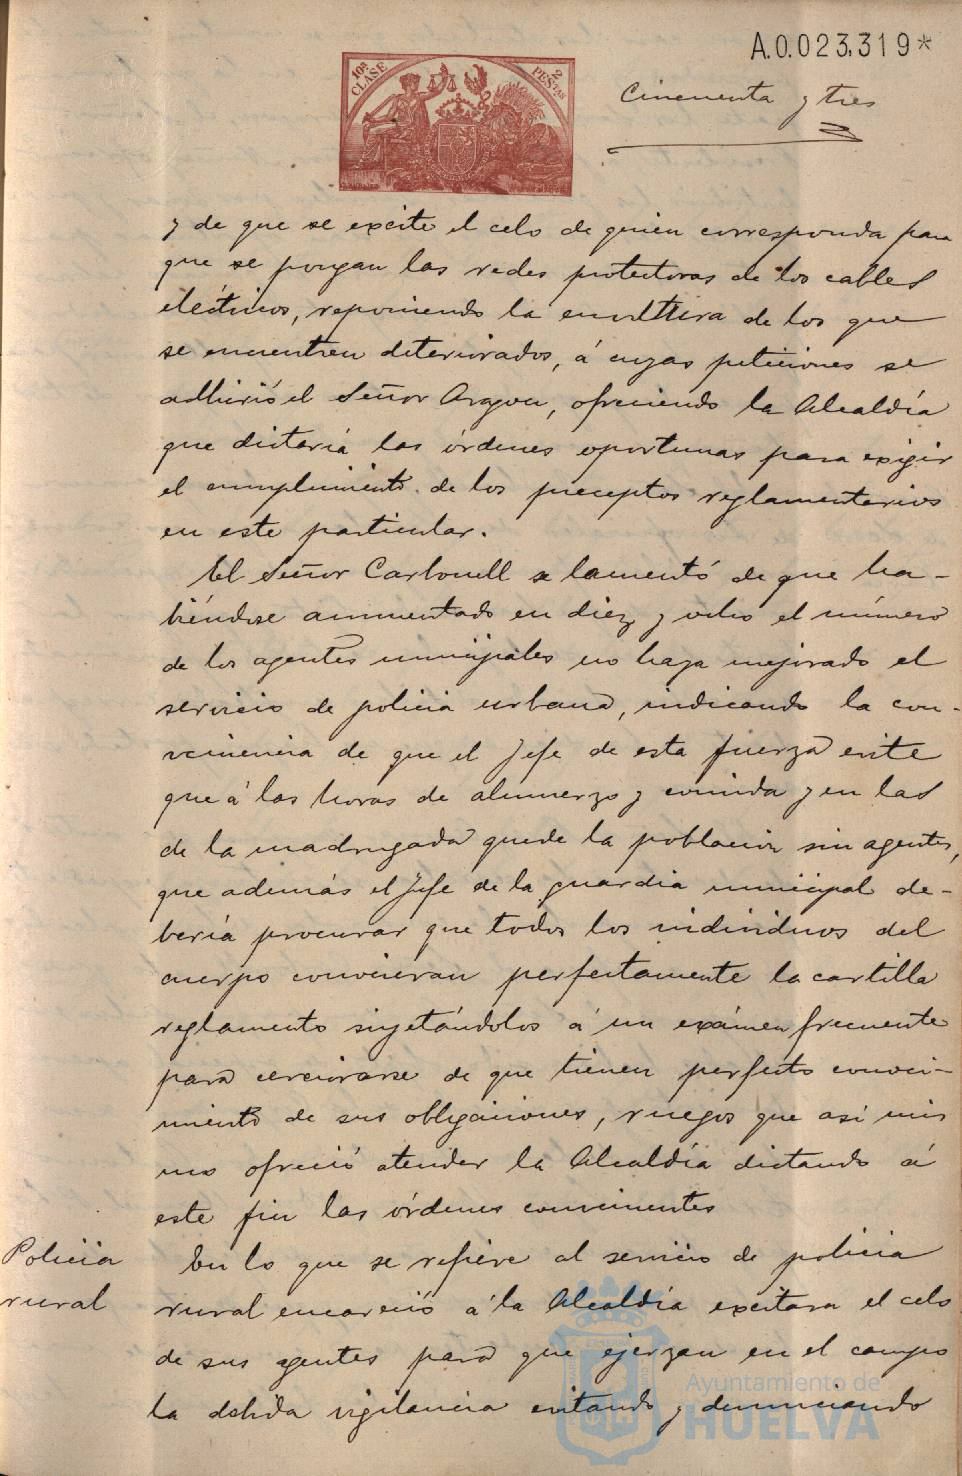 A.0.023,319*
10ª CLASE
2 PESETAS
Cincuenta y tres
y de que se excite el celo de quien corresponda para
que se pongan las redes protectoras de los cables
eléctricos, reponiendo la envoltura de los que
se encuentren deteriorados, á cuyas peticiones se
adhirió el Señor Aragon, ofreciendo la Alcaldía
que dictaria las órdenes oportunas para exigir
el cumplimiento de los preceptos reglamentarios
en este particular.
El Señor Carbonell se lamentó de que ha-
biéndose aumentado en diez y ocho el número
de los agentes municipales no haya mejorado el
servicio de policia urbana, indicando la con-
veniencia de que el Jefe de esta fuerza evite
que á las horas de almuerzo y comida y en las
de la madrugada quede la poblacion sin agentes,
que además el Jefe de la guardia municipal de-
beria procurar que todos los individuos del
cuerpo conocieran perfectamente la cartilla
reglamento sujetándolos á un exámen frecuente
para cerciorarse de que tienen perfecto conoci-
miento de sus obligaciones, ruegos que asi mis
mo ofreció atender la Alcaldía dictando á
este fin las órdenes convenientes
Policia
rural
En lo que se refiere al servicio de policia
rural encareció á la Alcaldía excitara el celo
de sus agentes para que ejerzan en el campo
la debida vigilancia evitando y denunciando
Ayuntamiento de
HUELVA